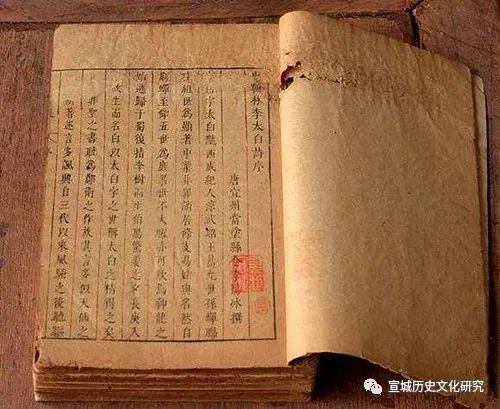 翰林李太白詩序
唐宣州當塗縣 冰撰
白字太白隴西成紀人涼武昭王暠九世孫蟬聯
珪組世為顯著中葉非罪謫居條支易姓與名然自
窮蟬至舜五世為庶累世不大曜亦可歎焉神龍之
始逃歸于蜀復指李樹而生伯陽驚姜之夕長庚入
故生而名白以太白字之世稱太白之精得之矣
非聖之書恥為鄭衛之作故其言多似天仙之
著述言多諷興自三代以來風騷之後馳驅
宣城历史文化研究